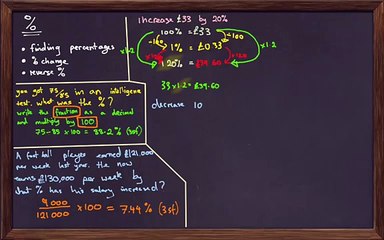 %
• finding percentages
• % change
• reverse %
you got 75/85 in an intelligence
test. what was the %?
write the fraction as a decimal
and multiply by 100
75÷85 ×100 = 88.2% (3sf)
A football player earned £121,000
per week last year. He now
earns £130,000 per week by
what % has his salary increased?
9000
121000
×100 = 7.44% (3sf)
increase £33 by 20%
100% = £33
÷100
÷100
1% = £0.33
×1.2
×120
×120
×1.2
120% = £39.60
33 × 1.2 = £39.60
decrease 10